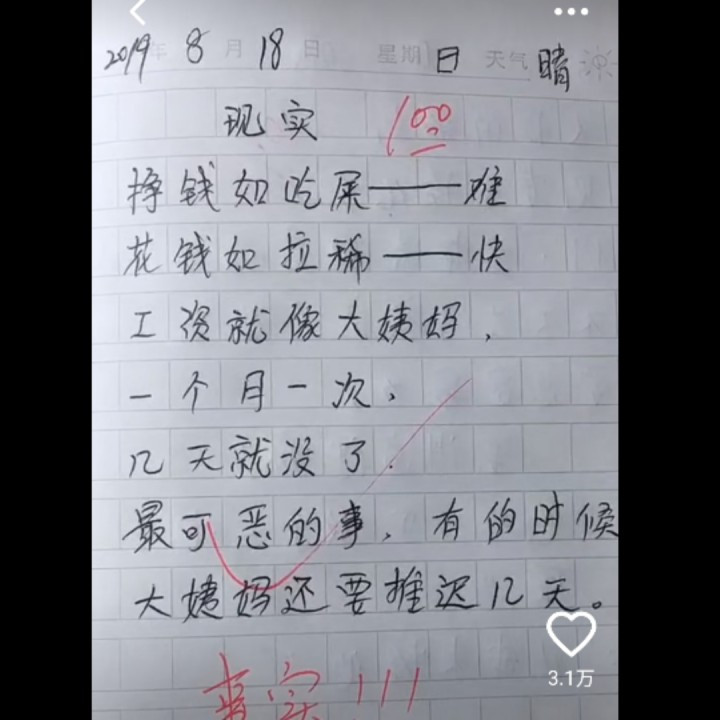 2019年 8月 18日 星期日 天气 晴
现实 100
挣钱如吃屎——难
花钱如拉稀——快
工资就像大姨妈，
一个月一次，
几天就没了.
最可恶的事，有的时候
大姨妈还要推迟几天。
3.1万
事实!!!